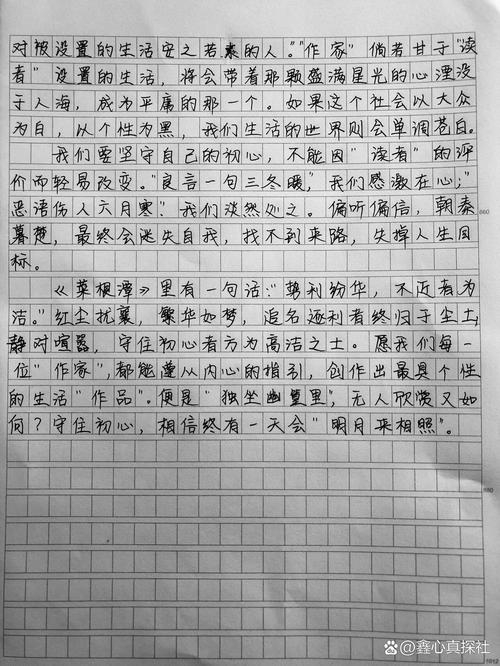 对被设置的生活安之若素的人。”“作家”倘若甘于“读
者”设置的生活，将会带着那颗盛满星光的心湮没
于人海，成为平庸的那一个。如果这个社会以大众
为白，以个性为黑，我们生活的世界则会单调苍白。
我们要坚守自己的初心，不能因“读者”的评
价而轻易改变。“良言一句三冬暖”，我们感激在心；“
恶语伤人六月寒”，我们淡然处之。偏听偏信，朝秦
暮楚，最终会迷失自我，找不到来路，失掉人生目
标。
660
《菜根潭》里有一句话：“势利纷华，不近者为
洁。”红尘扰襄，繁华如梦，追名逐利者终归于尘土，
静对喧嚣，守住初心者方为高洁之士。愿我们每一
位“作家”，都能遵从内心的指引，创作出最具个性
的生活“作品”。便是“独坐幽篁里”，无人欣赏又如
何？守住初心，相信终有一天会“明月来相照”。
880
鑫心真探社